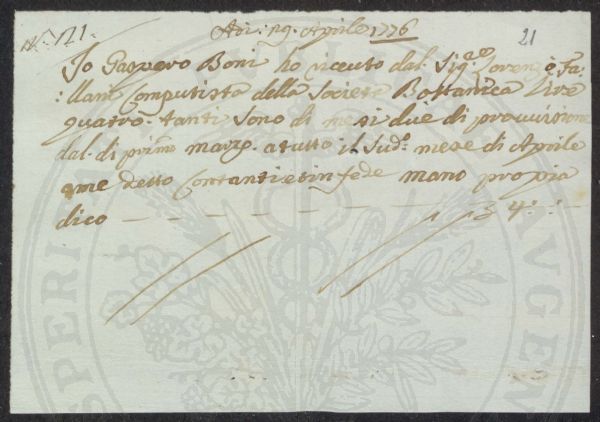 Adi: 29. Aprile 1776
21
N.: 121.
Io Gaspero Boni ho riceuto dal. Sig.re Lorenzo Fa:
:llani Computista della Societe Bottanica Lire
quatro. tanti sono di mesi due di provvisione
dal. di primo marzo. a tutto il sud.o mese di Aprile
ame detto Contanti et in fede mano propia
dico — — — — — — — — 4: :